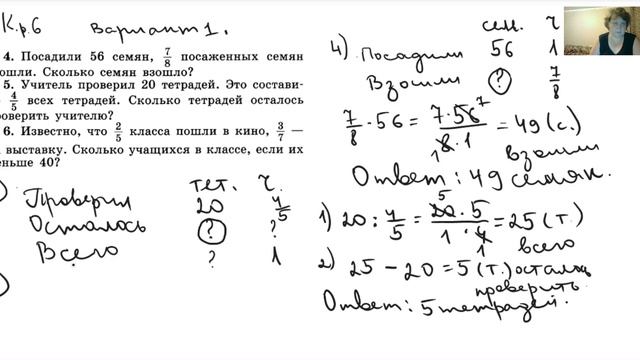 К.р.6 Вариант 1.
4. Посадили 56 семян, 7/8 посаженных семян
ошли. Сколько семян взошло?
5. Учитель проверил 20 тетрадей. Это состави-
4/5 всех тетрадей. Сколько тетрадей осталось
роверить учителю?
6. Известно, что 2/5 класса пошли в кино, 3/7 —
выставку. Сколько учащихся в классе, если их
ньше 40?
тет. ч.
Проверил 20 4/5
Осталось ? ?
Всего ? 1
сем. ч
4) Посадили 56 1
Взошли ? 7/8
7/8 · 56 = 7·56/8·1 = 49 (с.)
7
1
взошли
Ответ: 49 семян.
1) 20 : 4/5 = 20·5/1·4 = 25 (т.)
5
1
всего
2) 25 − 20 = 5 (т.) осталось
проверить
Ответ: 5 тетрадей.